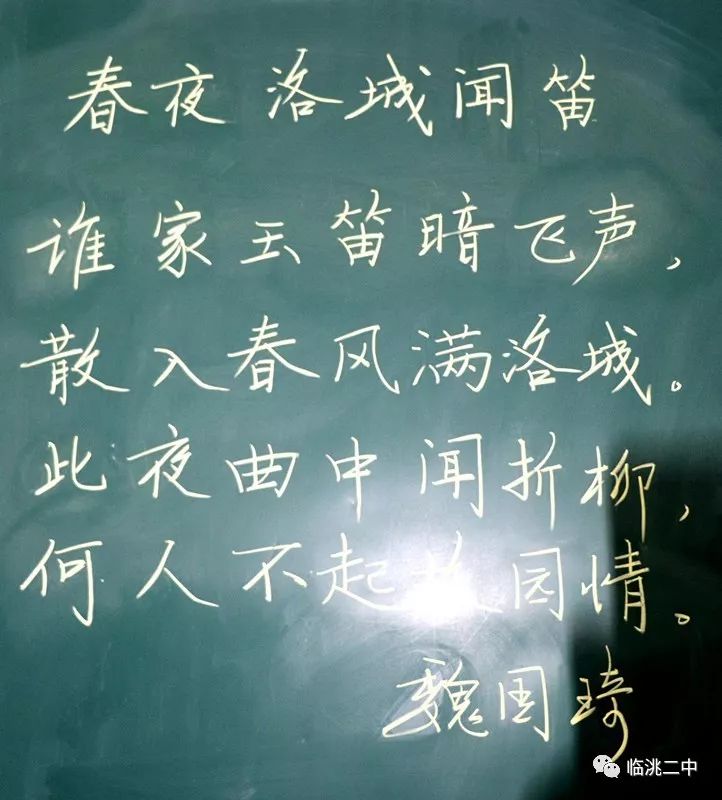 春夜洛城闻笛
谁家玉笛暗飞声，
散入春风满洛城。
此夜曲中闻折柳，
何人不起故园情。
魏国琦
临洮二中